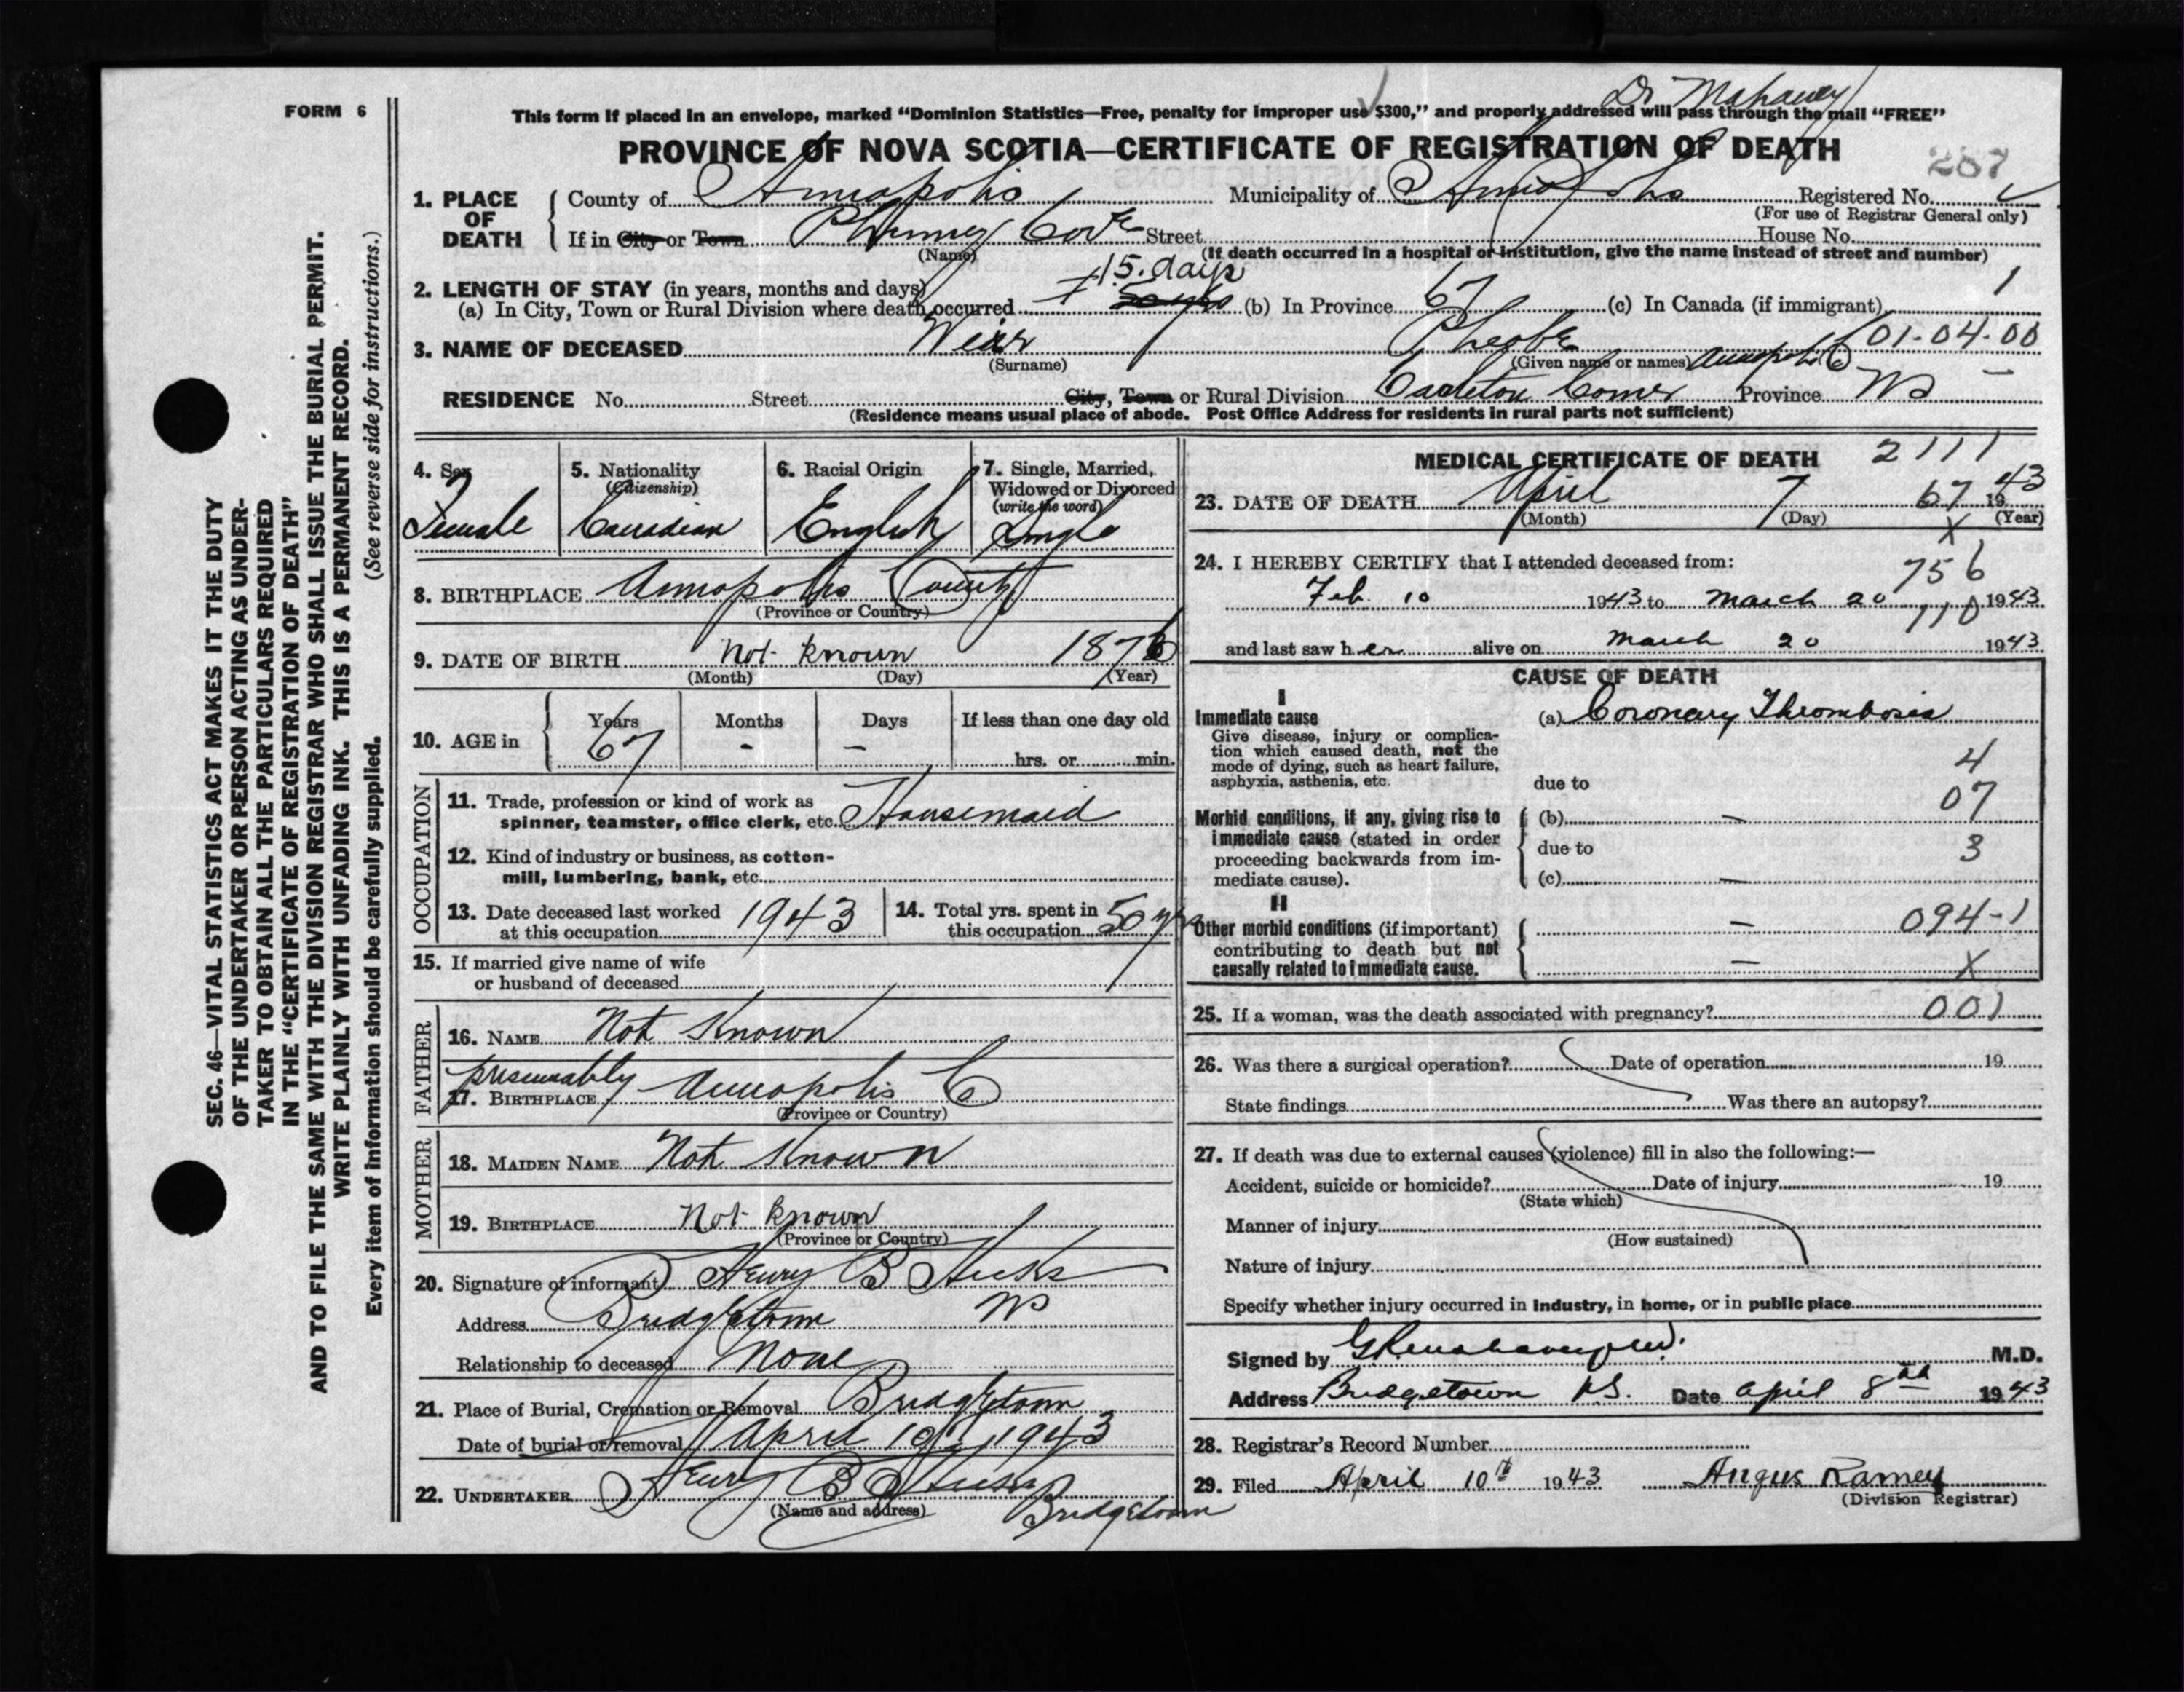 Dr Mahaney
FORM 6
This form if placed in an envelope, marked “Dominion Statistics—Free, penalty for improper use $300,” and properly addressed will pass through the mail “FREE”
PROVINCE OF NOVA SCOTIA—CERTIFICATE OF REGISTRATION OF DEATH
287
1. PLACE OF DEATH
County of Annapolis Municipality of Annapolis Registered No.
(For use of Registrar General only)
If in City or Town Phinney Cove Street House No.
(Name) (If death occurred in a hospital or institution, give the name instead of street and number)
15. days
2. LENGTH OF STAY (in years, months and days)
(a) In City, Town or Rural Division where death occurred (b) In Province 67 (c) In Canada (if immigrant) 1
3. NAME OF DECEASED Weir Pheobe 01-04-00
(Surname) (Given name or names) Annapolis Co
RESIDENCE No. Street City, Town or Rural Division Carleton Corner Province NS
(Residence means usual place of abode. Post Office Address for residents in rural parts not sufficient)
4. Sex
Female
5. Nationality
(Citizenship)
Canadian
6. Racial Origin
English
7. Single, Married,
Widowed or Divorced
(write the word)
Single
8. BIRTHPLACE Annapolis County
(Province or Country)
9. DATE OF BIRTH Not known 1876
(Month) (Day) (Year)
10. AGE in
Years Months Days If less than one day old
67 - - hrs. or min.
OCCUPATION
11. Trade, profession or kind of work as
spinner, teamster, office clerk, etc. Housemaid
12. Kind of industry or business, as cotton-
mill, lumbering, bank, etc.
13. Date deceased last worked
at this occupation 1943
14. Total yrs. spent in
this occupation 50 yrs
15. If married give name of wife
or husband of deceased
FATHER
16. NAME Not Known
presumably
17. BIRTHPLACE Annapolis Co
(Province or Country)
MOTHER
18. MAIDEN NAME Not Known
19. BIRTHPLACE Not known
(Province or Country)
20. Signature of informant Henry B Hicks
Address Bridgetown NS
Relationship to deceased None
21. Place of Burial, Cremation or Removal Bridgetown
Date of burial or removal April 10 1943
22. UNDERTAKER Henry B Hicks
(Name and address) Bridgetown
MEDICAL CERTIFICATE OF DEATH 2111
23. DATE OF DEATH April 7 67 1943
(Month) (Day) (Year)
X
24. I HEREBY CERTIFY that I attended deceased from:
756
Feb 10 1943 to March 20 1943
110
and last saw her alive on March 20 1943
CAUSE OF DEATH
I
Immediate cause
Give disease, injury or complica-
tion which caused death, not the
mode of dying, such as heart failure,
asphyxia, asthenia, etc.
(a) Coronary Thrombosis
4
due to
07
Morbid conditions, if any, giving rise to
immediate cause (stated in order
proceeding backwards from im-
mediate cause).
(b) —
due to
3
(c) —
II
Other morbid conditions (if important)
contributing to death but not
causally related to immediate cause.
— 094-1
— X
25. If a woman, was the death associated with pregnancy? 001
26. Was there a surgical operation? Date of operation 19
State findings Was there an autopsy?
27. If death was due to external causes (violence) fill in also the following:—
Accident, suicide or homicide? Date of injury 19
(State which)
Manner of injury
(How sustained)
Nature of injury
Specify whether injury occurred in industry, in home, or in public place
Signed by M.D.
Address Bridgetown NS. Date April 8th 1943
28. Registrar's Record Number
29. Filed April 10th 1943 Angus Ramey
(Division Registrar)
SEC. 46—VITAL STATISTICS ACT MAKES IT THE DUTY
OF THE UNDERTAKER OR PERSON ACTING AS UNDER-
TAKER TO OBTAIN ALL THE PARTICULARS REQUIRED
IN THE “CERTIFICATE OF REGISTRATION OF DEATH”
AND TO FILE THE SAME WITH THE DIVISION REGISTRAR WHO SHALL ISSUE THE BURIAL PERMIT.
WRITE PLAINLY WITH UNFADING INK. THIS IS A PERMANENT RECORD.
Every item of information should be carefully supplied. (See reverse side for instructions.)